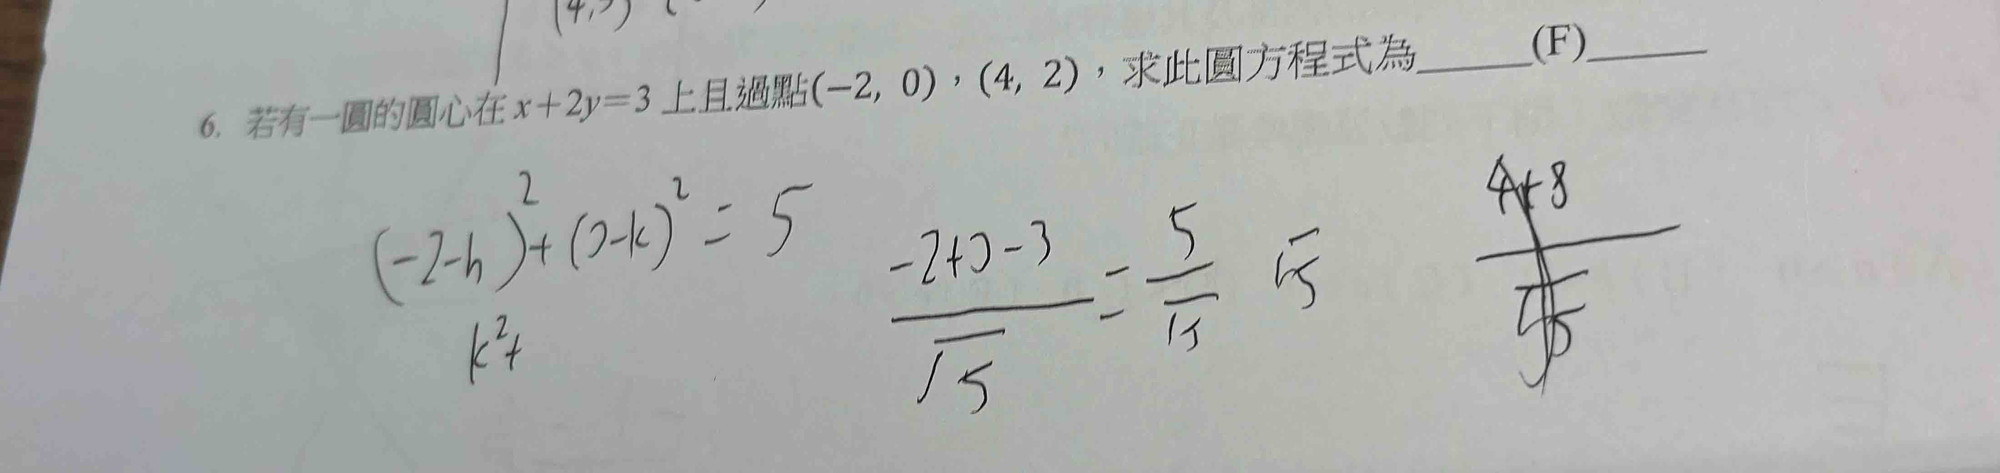 (4,
6. 若有一圓的圓心在 x+2y=3 上且過點(−2, 0),(4, 2),求此圓方程式為_____(F)_____
(-2-h)²+(0-k)²=5
k²+
(-2+0-3)/√5 = 5/√5 √5
4+8
√5